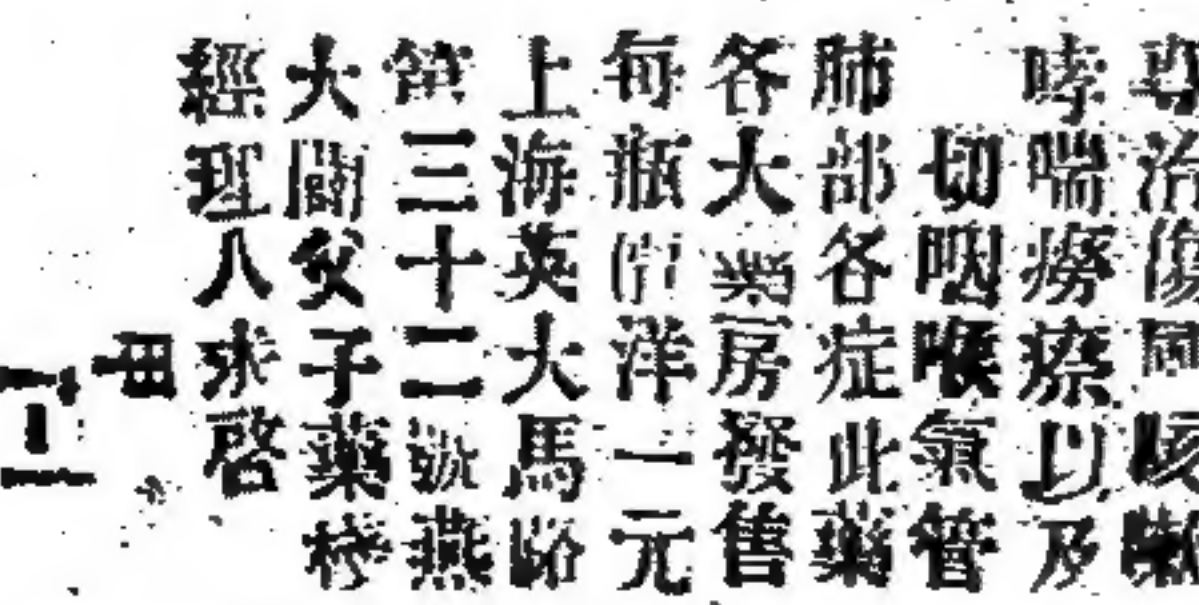 專治傷風咳嗽
哮喘癆瘵以及
切咽喉氣管
肺部各症此藥
各大藥房發售
每瓶價洋一元
上海英大馬路
第三十二號燕
大闢父子藥
經理八球啓